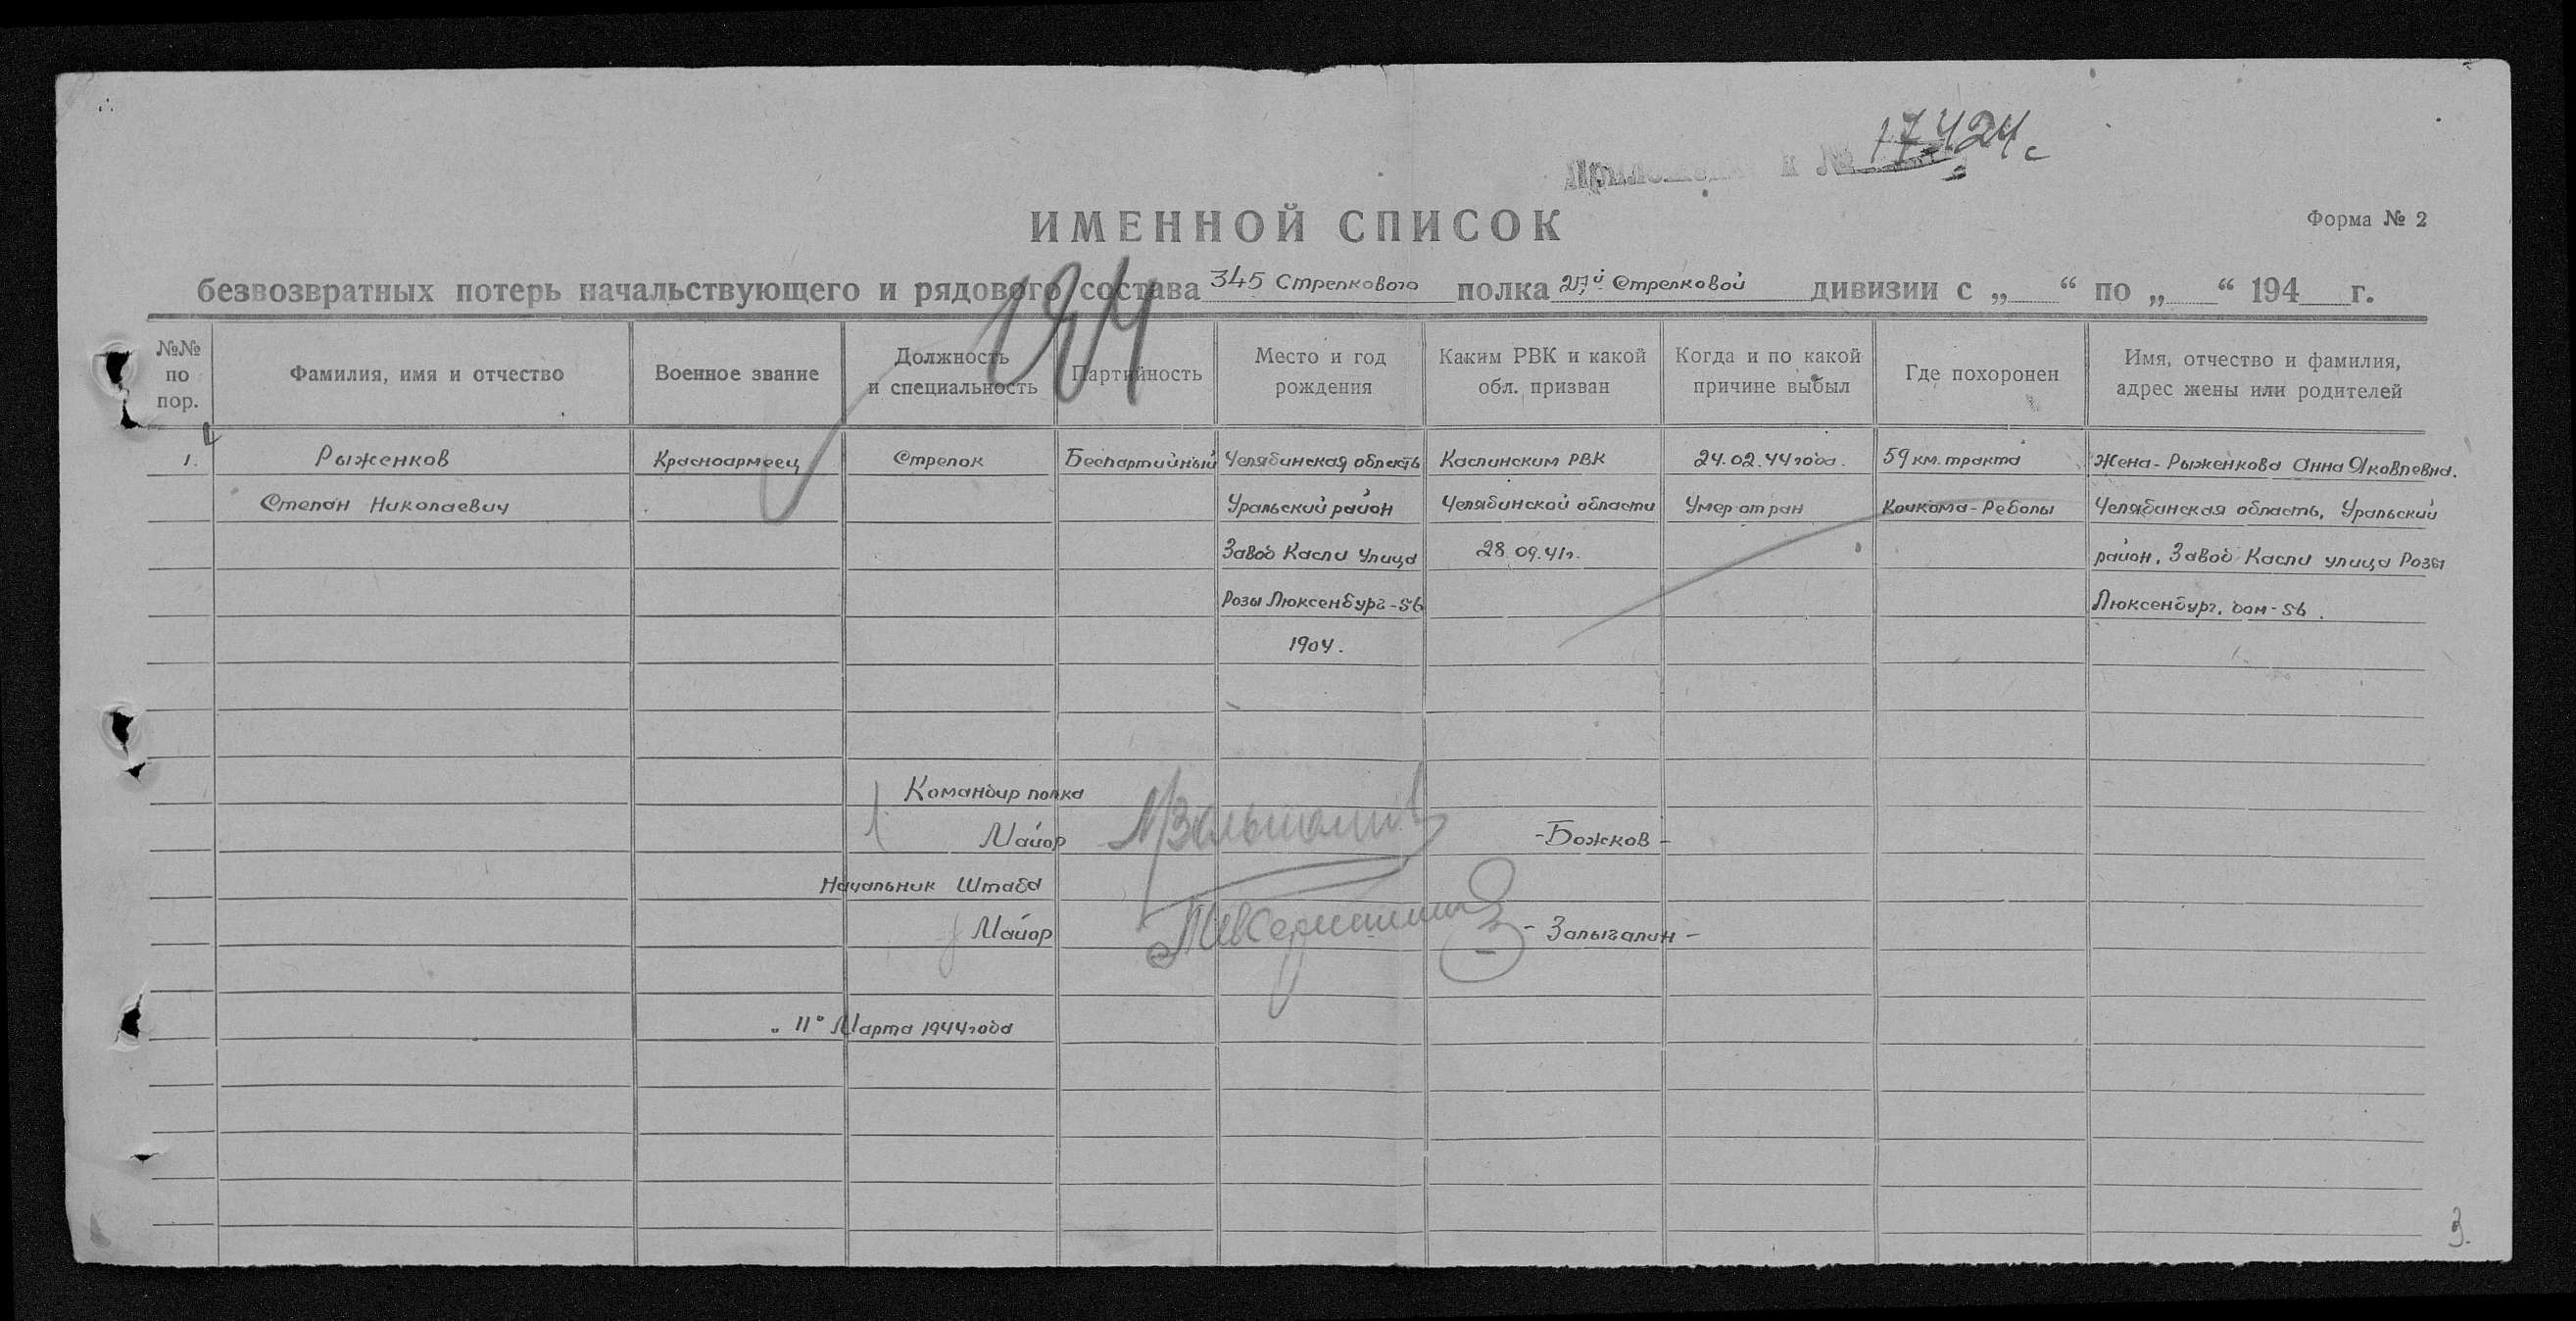 Приложение к № 17424с
ИМЕННОЙ СПИСОК
Форма № 2
безвозвратных потерь начальствующего и рядового состава 345 Стрелкового полка 27й Стрелковой дивизии с „ “ по „ “ 194 г.
№№ по пор.
Фамилия, имя и отчество
Военное звание
Должность и специальность
Партийность
Место и год рождения
Каким РВК и какой обл. призван
Когда и по какой причине выбыл
Где похоронен
Имя, отчество и фамилия, адрес жены или родителей
1. Рыженков Красноармеец Стрелок Беспартийный Челябинская область Каслинским РВК 24.02.44 года. 59 км. тракта Жена - Рыженкова Анна Яковлевна.
Степан Николаевич Уральский район Челябинской области Умер от ран Кочкома - Реболы Челябинская область, Уральский
Завод Касли улица 28.09.41г. район, Завод Касли улица Розы
Розы Люксенбург - 56 Люксенбург, дом - 56.
1904.
Командир полка
Майор - Божков -
Начальник Штаба
Майор - Залыгалин -
„ 11 “ Марта 1944 года
3.